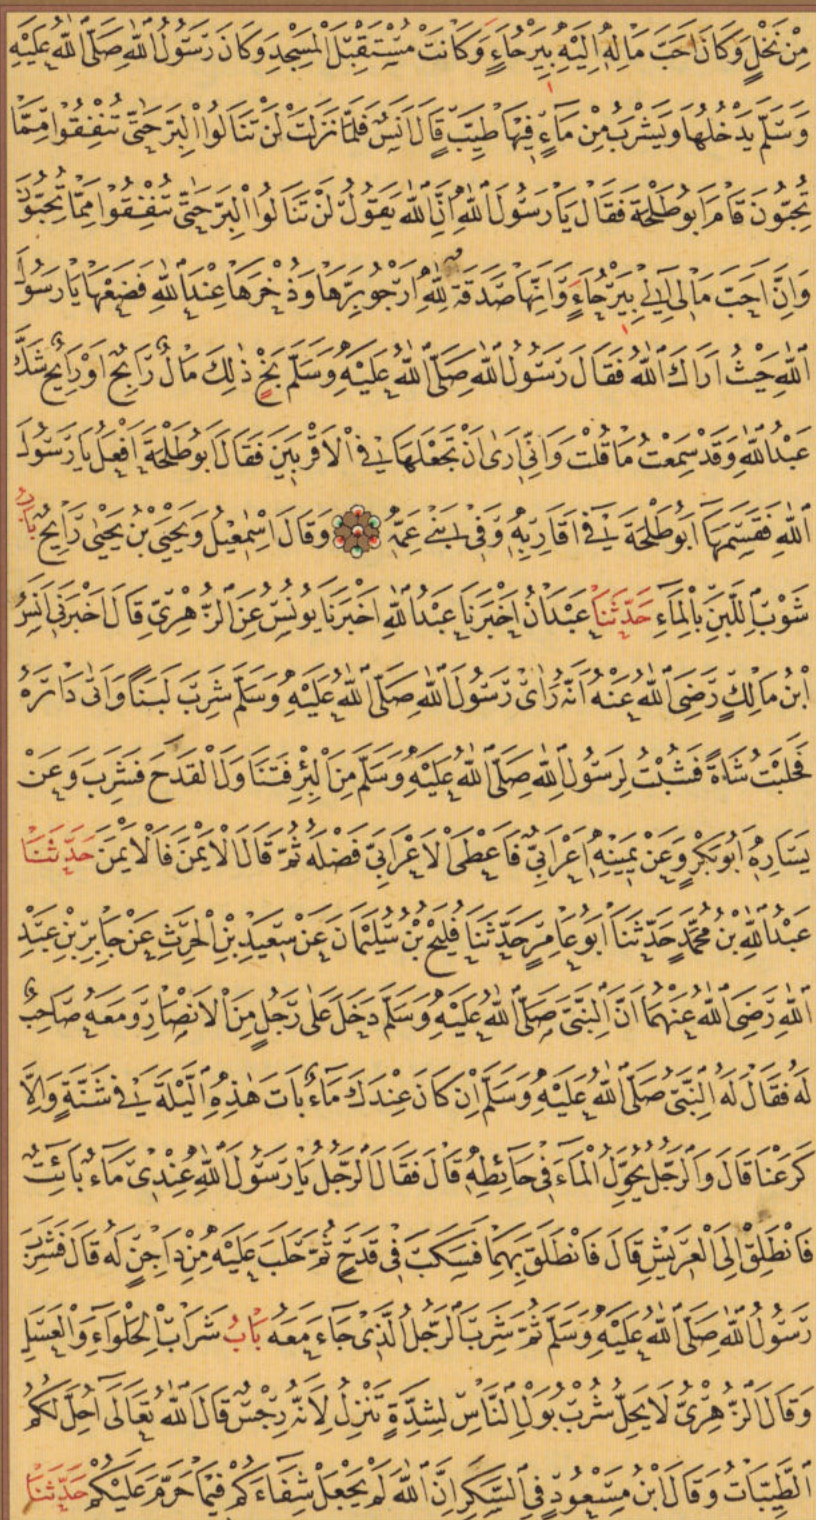 مِنْ نَخْلٍ وَكَانَ اَحَبَّ مَالِهِ اِلَيْهِ بِيَرْحَاءٍ وَكَانَتْ مُسْتَقْبِلَ الْمَسْجِدِ وَكَانَ رَسُولُ اللهِ صَلَّى اللهُ عَلَيْهِ
وَسَلَّمَ يَدْخُلُهَا وَيَشْرَبُ مِنْ مَاءٍ فِيهَا طَيِّبٍ قَالَ اَنَسٌ فَلَمَّا نَزَلَتْ لَنْ تَنَالُوا الْبِرَّ حَتَّى تُنْفِقُوا مِمَّا
تُحِبُّونَ قَامَ اَبُو طَلْحَةَ فَقَالَ يَا رَسُولَ اللهِ اِنَّ اللهَ يَقُولُ لَنْ تَنَالُوا الْبِرَّ حَتَّى تُنْفِقُوا مِمَّا تُحِبُّونَ
وَاِنَّ اَحَبَّ مَالِى اِلَىَّ بِيَرْحَاءٍ وَاِنَّهَا صَدَقَةٌ لِلّٰهِ اَرْجُو بِرَّهَا وَذُخْرَهَا عِنْدَ اللهِ فَضَعْهَا يَا رَسُولَ
اللهِ حَيْثُ اَرَاكَ اللهُ فَقَالَ رَسُولُ اللهِ صَلَّى اللهُ عَلَيْهِ وَسَلَّمَ بَخٍ ذٰلِكَ مَالٌ رَابِحٌ اَوْ رَايِحٌ شَكَّ
عَبْدُ اللهِ وَقَدْ سَمِعْتُ مَا قُلْتَ وَاِنِّى اَرٰى اَنْ تَجْعَلَهَا فِى الْاَقْرَبِينَ فَقَالَ اَبُو طَلْحَةَ اَفْعَلُ يَا رَسُولَ
اللهِ فَقَسَمَهَا اَبُو طَلْحَةَ فِى اَقَارِبِهِ وَفِى بَنِى عَمِّهِ وَقَالَ اِسْمٰعِيلُ وَيَحْيَى بْنُ يَحْيٰى رَايِحٌ بَابُ
شَوْبِ اللَّبَنِ بِالْمَاءِ حَدَّثَنَا عَبْدَانُ اَخْبَرَنَا عَبْدُ اللهِ اَخْبَرَنَا يُونُسُ عَنِ الزُّهْرِىِّ قَالَ اَخْبَرَنِى اَنَسُ
ابْنُ مَالِكٍ رَضِىَ اللهُ عَنْهُ اَنَّهُ رَاٰى رَسُولَ اللهِ صَلَّى اللهُ عَلَيْهِ وَسَلَّمَ شَرِبَ لَبَنًا وَاَتٰى دَارَهُ
فَحَلَبْتُ شَاةً فَشُبْتُ لِرَسُولِ اللهِ صَلَّى اللهُ عَلَيْهِ وَسَلَّمَ مِنَ الْبِئْرِ فَتَنَاوَلَ الْقَدَحَ فَشَرِبَ وَعَنْ
يَسَارِهِ اَبُو بَكْرٍ وَعَنْ يَمِينِهِ اَعْرَابِىٌّ فَاَعْطَى الْاَعْرَابِىَّ فَضْلَهُ ثُمَّ قَالَ الْاَيْمَنَ فَالْاَيْمَنَ حَدَّثَنَا
عَبْدُ اللهِ بْنُ مُحَمَّدٍ حَدَّثَنَا اَبُو عَامِرٍ حَدَّثَنَا فُلَيْحُ بْنُ سُلَيْمَانَ عَنْ سَعِيدِ بْنِ الْحٰرِثِ عَنْ جَابِرِ بْنِ عَبْدِ
اللهِ رَضِىَ اللهُ عَنْهُمَا اَنَّ النَّبِىَّ صَلَّى اللهُ عَلَيْهِ وَسَلَّمَ دَخَلَ عَلٰى رَجُلٍ مِنَ الْاَنْصَارِ وَمَعَهُ صَاحِبٌ
لَهُ فَقَالَ لَهُ النَّبِىُّ صَلَّى اللهُ عَلَيْهِ وَسَلَّمَ اِنْ كَانَ عِنْدَكَ مَاءٌ بَاتَ هٰذِهِ اللَّيْلَةَ فِى شَنَّةٍ وَاِلَّا
كَرَعْنَا قَالَ وَالرَّجُلُ يُحَوِّلُ الْمَاءَ فِى حَائِطِهِ قَالَ فَقَالَ الرَّجُلُ يَا رَسُولَ اللهِ عِنْدِى مَاءٌ بَائِتٌ
فَانْطَلِقْ اِلَى الْعَرِيشِ قَالَ فَانْطَلَقَ بِهِمَا فَسَكَبَ فِى قَدَحٍ ثُمَّ حَلَبَ عَلَيْهِ مِنْ دَاجِنٍ لَهُ قَالَ فَشَرِبَ
رَسُولُ اللهِ صَلَّى اللهُ عَلَيْهِ وَسَلَّمَ ثُمَّ شَرِبَ الرَّجُلُ الَّذِى جَاءَ مَعَهُ بَابُ شَرَابِ الْحَلْوَاءِ وَالْعَسَلِ
وَقَالَ الزُّهْرِىُّ لَا يَحِلُّ شُرْبُ بَوْلِ النَّاسِ لِشِدَّةٍ تَنْزِلُ لِاَنَّهُ رِجْسٌ قَالَ اللهُ تَعَالَى اُحِلَّ لَكُمُ
الطَّيِّبَاتُ وَقَالَ ابْنُ مَسْعُودٍ فِى السَّكَرِ اِنَّ اللهَ لَمْ يَجْعَلْ شِفَاءَكُمْ فِيمَا حَرَّمَ عَلَيْكُمْ حَدَّثَنَا